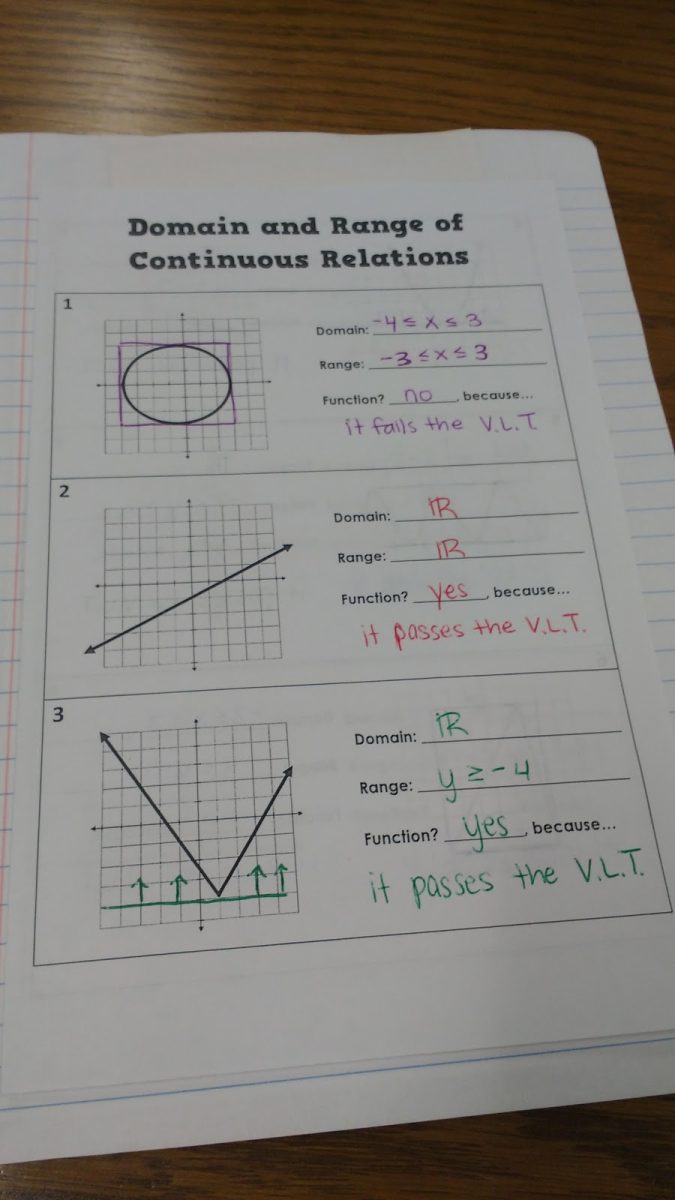 Domain and Range of
Continuous Relations
1
Domain: -4 ≤ x ≤ 3
Range: -3 ≤ x ≤ 3
Function? no, because...
it fails the V.L.T.
2
Domain: ℝ
Range: ℝ
Function? yes, because...
it passes the V.L.T.
3
Domain: ℝ
Range: y ≥ -4
Function? yes, because...
it passes the V.L.T.